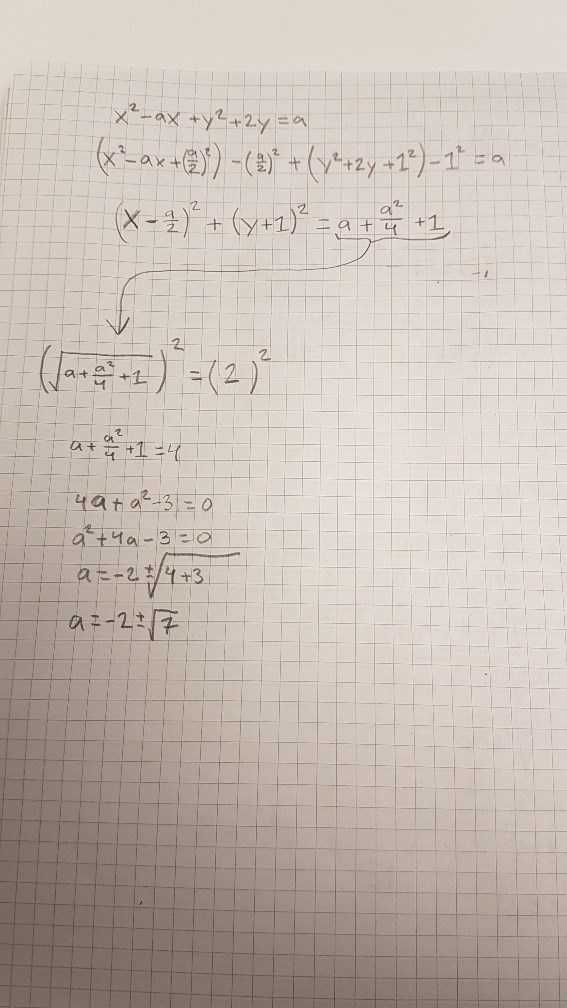 x² - ax + y² + 2y = a
(x² - ax + (a/2)²) - (a/2)² + (y² + 2y + 1²) - 1² = a
(x - a/2)² + (y + 1)² = a + a²/4 + 1
(√(a + a²/4 + 1))² = (2)²
a + a²/4 + 1 = 4
4a + a² - 3 = 0
a² + 4a - 3 = 0
a = -2 ± √(4 + 3)
a = -2 ± √7